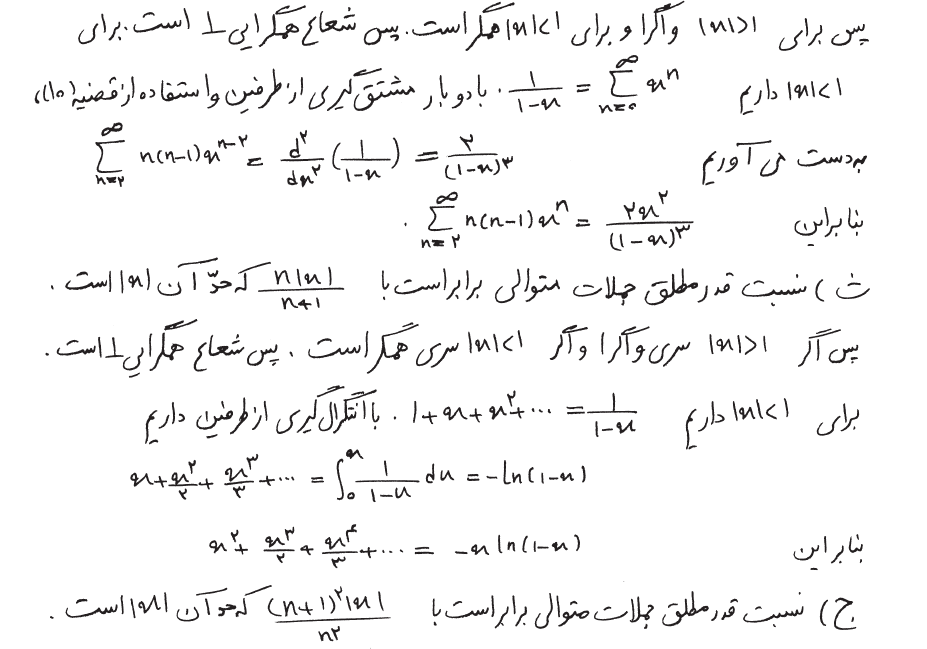 پس برای |x|>1 واگرا و برای |x|<1 همگراست. پس شعاع همگرایی 1 است. برای
|x|<1 داریم \frac{1}{1-x} = \sum_{n=0}^{\infty} x^n . با دو بار مشتق‌گیری از طرفین و استفاده از قضیهٔ (۱۰)،
به‌دست می‌آوریم \sum_{n=۲}^{\infty} n(n-1)x^{n-۲} = \frac{d^۲}{dx^۲}(\frac{1}{1-x}) = \frac{۲}{(1-x)^۳}
بنابراین \sum_{n=۲}^{\infty} n(n-1)x^n = \frac{۲x^۲}{(1-x)^۳} .
ث) نسبت قدر مطلق جملات متوالی برابر است با \frac{n|x|}{n+1} که حدّ آن |x| است.
پس اگر |x|>1 سری واگرا و اگر |x|<1 سری همگر است. پس شعاع همگرایی 1 است.
برای |x|<1 داریم 1+x+x^۲+... = \frac{1}{1-x} . با انتگرال‌گیری از طرفین داریم
x+\frac{x^۲}{۲}+\frac{x^۳}{۳}+... = \int_0^x \frac{1}{1-u} du = -ln(1-x)
بنابراین x^۲+\frac{x^۳}{۲}+\frac{x^۴}{۳}+... = -x ln(1-x)
ج) نسبت قدر مطلق جملات متوالی برابر است با \frac{(n+1)^۲|x|}{n^۲} که حد آن |x| است.